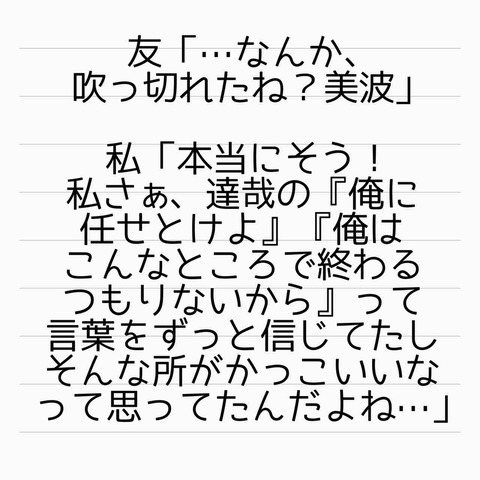 友「…なんか、
吹っ切れたね？美波」
私「本当にそう！
私さぁ、達哉の『俺に
任せとけよ』『俺は
こんなところで終わる
つもりないから』って
言葉をずっと信じてたし
そんな所がかっこいいな
って思ってたんだよね…」